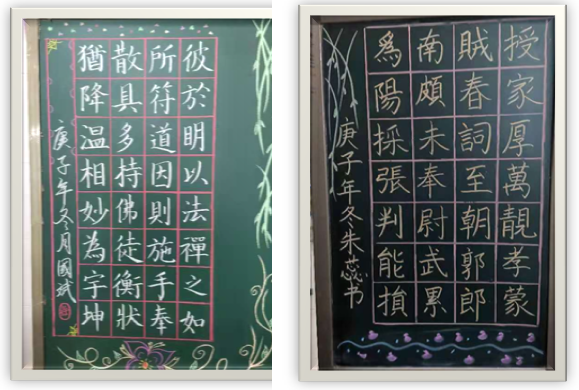 彼於明以法禪之如
所符道因則施手奉
散具多持佛徒衡狀
猶降温相妙為字坤
庚子年冬月國斌
授家厚萬靚孝蒙
賊春詞至朝郭郎
南頗未奉尉武累
爲陽採張判能損
庚子年冬朱蕊书